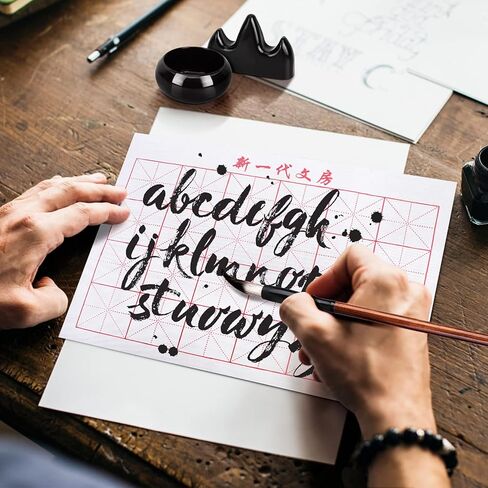 新一代文房
abcdefgh
ijklmnop
stuvwxy